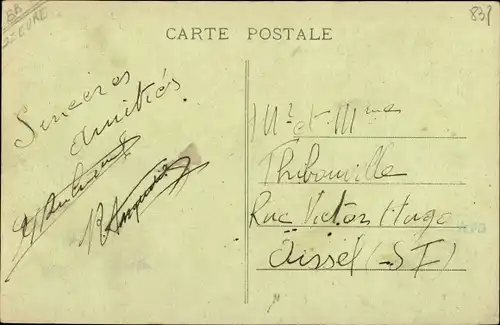 BB
EURE
83f
CARTE POSTALE
Sincères
amitiés
Mr et Mme
Thibouville
Rue Victor Hugo
Oissel (S I)